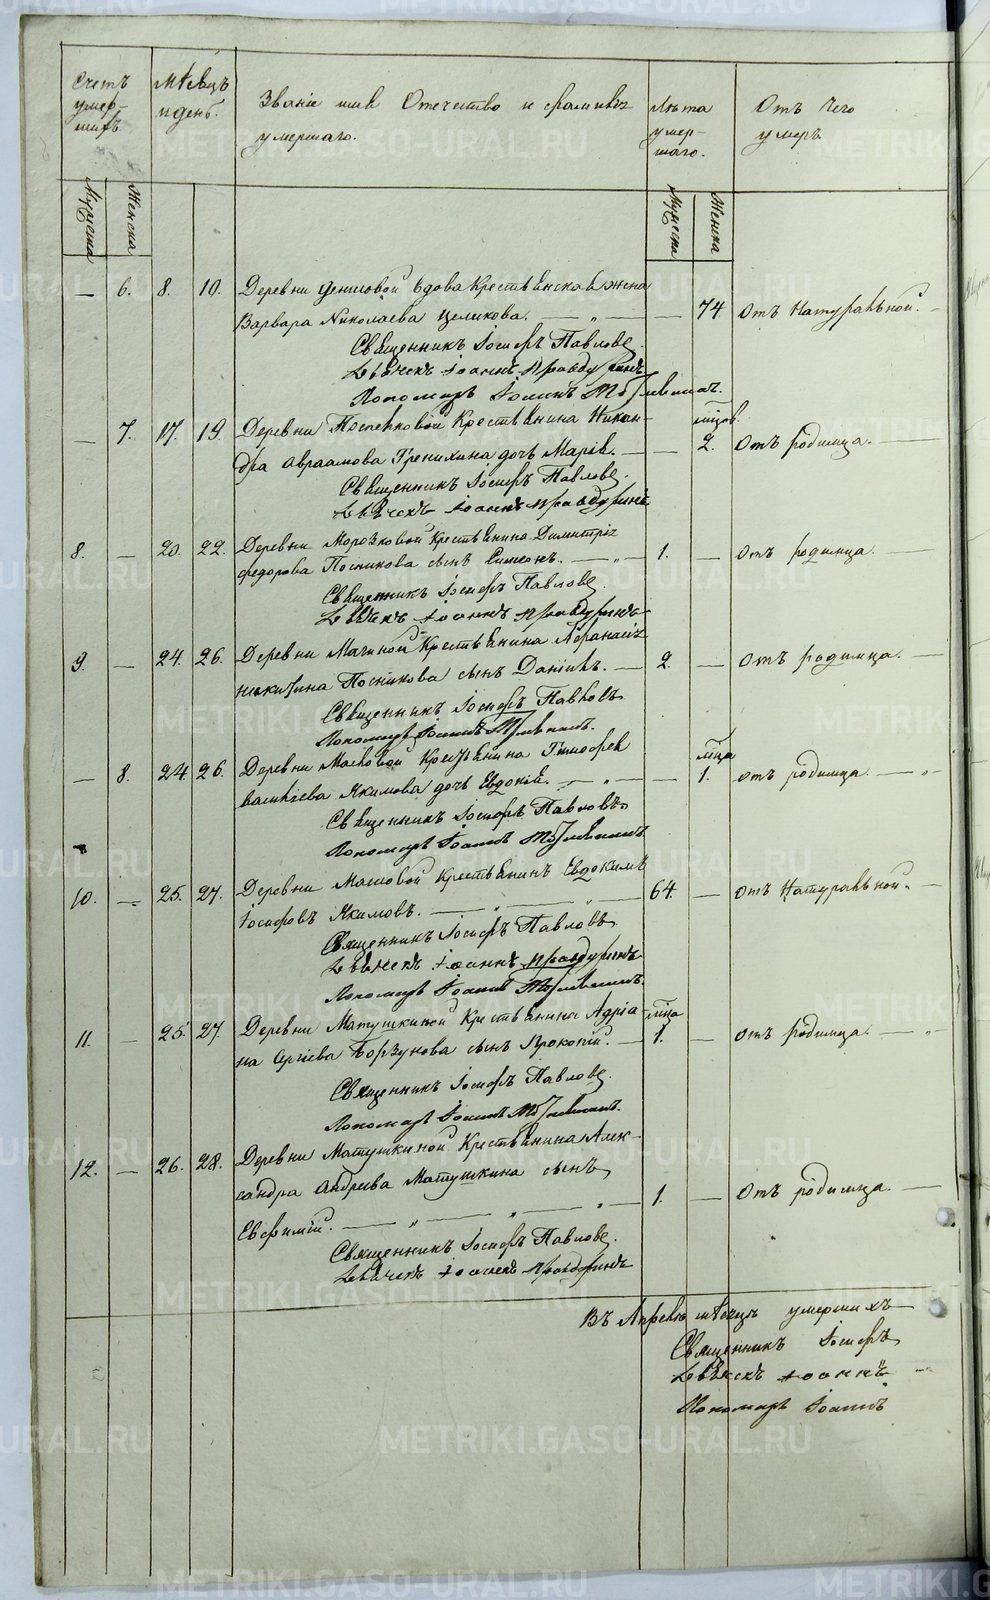 Счетъ умер-шихъ
Мѣсяцъ и день
Званіе имя Отечество и фамилія умершаго.
Лѣта умер-шаго.
Отъ чего умеръ
Мужеска
Женска
Мужеска
Женска
— 6. 8. 10. Деревни Денисовой вдова Крестьянская жена
Варвара Николаева Целикова. — „ — — 74 Отъ Натуральной. —
Священникъ Іосифъ Павловъ
Дьячекъ Іоаннъ Правдуринъ
Пономарь Іоаннъ
— 7. 17. 19. Деревни Крестьянина Никан- мѣсцов.
дра Авраамова дочь Марія. — — 2. Отъ родимца. —
Священникъ Іосифъ Павловъ.
Дьячекъ Іоаннъ Правдуринъ
8. — 20. 22. Деревни Морозковой Крестьянина Димитрія
Федорова Посникова сынъ Симеонъ. — „ — 1. — Отъ родимца. —
Священникъ Іосифъ Павловъ
Дьячекъ Іоаннъ Правдуринъ
9. — 24. 26. Деревни Крестьянина Афанасія
Никитина Посникова сынъ Даніилъ. — 2. — Отъ родимца. —
Священникъ Іосифъ Павловъ
Пономарь Іоаннъ
— 8. 24 26. Деревни Крестьянина Тимофея мѣсца
Васильева Якимова дочь Евдокія. — „ — — 1. отъ родимца. — „
Священникъ Іосифъ Павловъ
Пономарь Іоаннъ
10. — 25. 27. Деревни Крестьянинъ Евдокимъ
Іосифовъ Якимовъ. — „ — „ — 64. — отъ Натуральной. —
Священникъ Іосифъ Павловъ
Дьячекъ Іоаннъ Правдуринъ
Пономарь Іоаннъ
11. — 25. 27. Деревни Матушкиной Крестьянина Адріа- мѣсца
на Сергіева Борзунова сынъ Прокопій. — 1. — Отъ родимца. — „
Священникъ Іосифъ Павловъ
Пономарь Іоаннъ
12. — 26. 28. Деревни Матушкиной Крестьянина Алек-
сандра Андреева Матушкина сынъ
Евфимій. — „ — „ — „ — 1. — Отъ родимца —
Священникъ Іосифъ Павловъ.
Дьячекъ Іоаннъ Правдуринъ
Въ Апрелѣ мѣсяцѣ умершихъ
Священникъ Іосифъ
Дьячекъ Іоаннъ
Пономарь Іоаннъ
METRIKI.GASO-URAL.RU